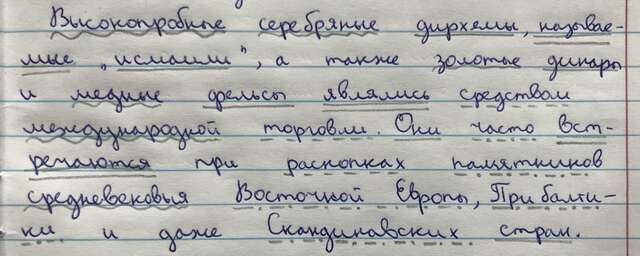 Высокопробные серебряные дирхемы, называе-
мые "исмаили", а также золотые динары
и медные фельсы являлись средством
международной торговли. Они часто вст-
речаются при раскопках памятников
средневековья Восточной Европы, Прибалти-
ки и даже Скандинавских стран.